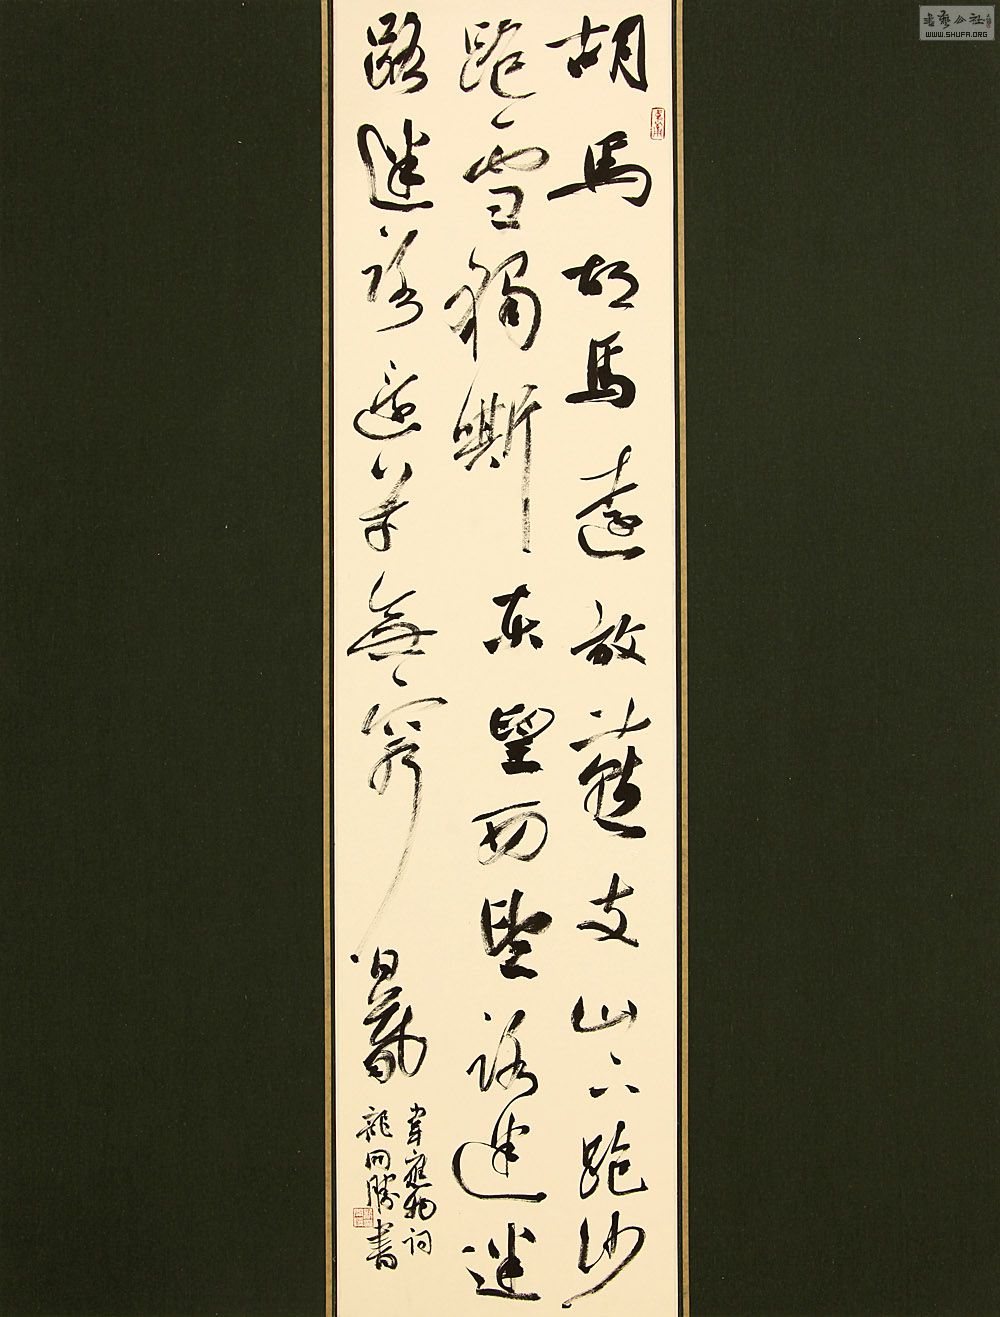 胡馬胡馬遠放燕支山下跑沙
跑雪獨嘶東望西望路迷迷
路迷路邊草無窮日暮
韋應物詞
龍開勝書
書藝公社
WWW.SHUFA.ORG